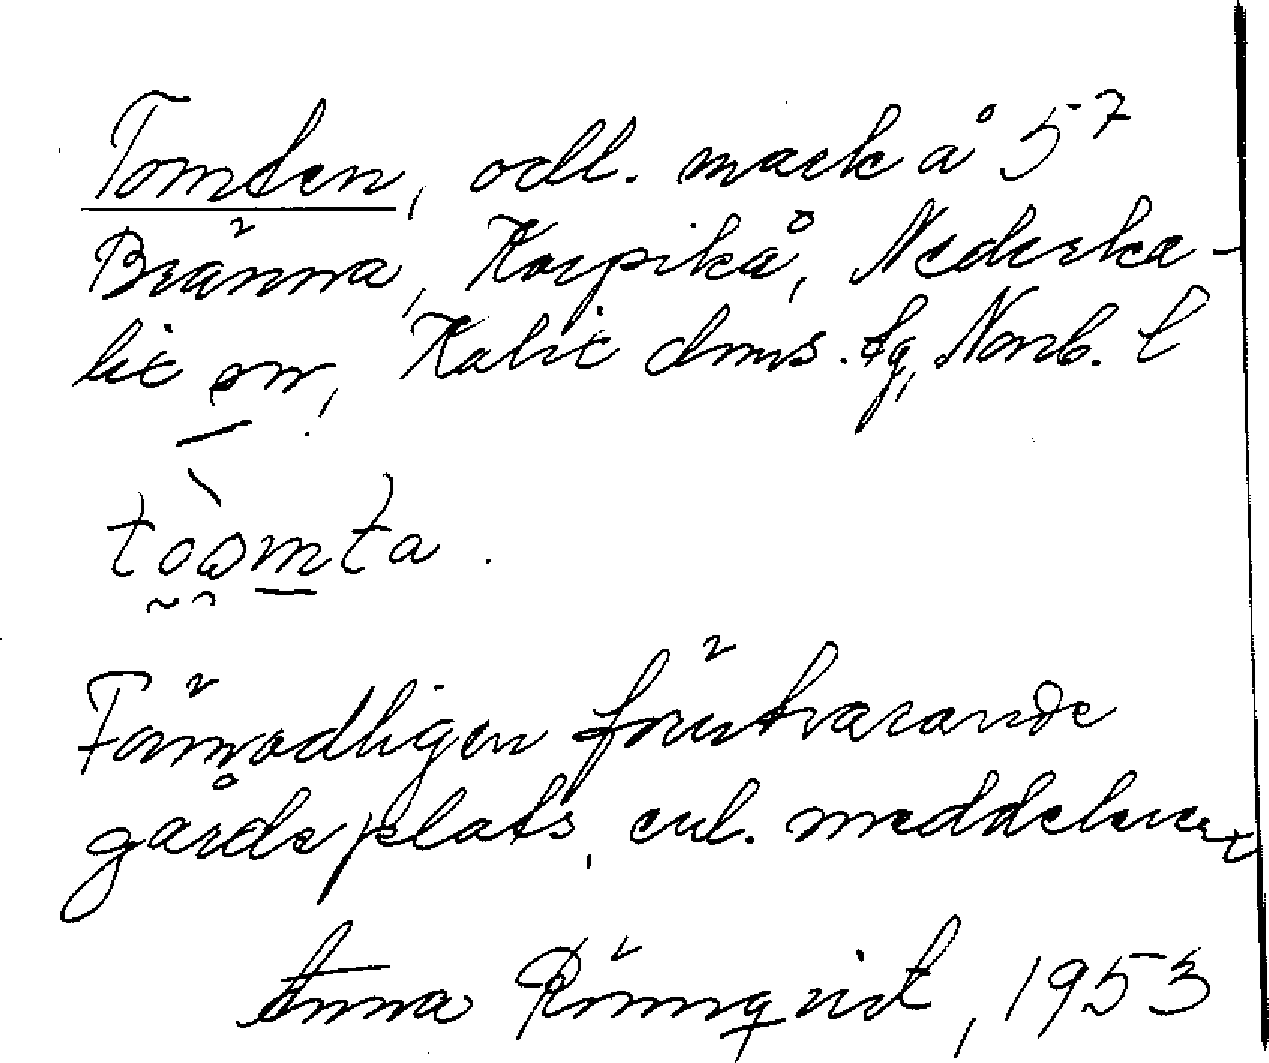 Tomten, odl. mark å 5⁷
Bränna, Korpikå, Nederka-
lix sn, Kalix dms. tg, Norrb. l
tòomta.
Förmodligen förutvarande
gårdsplats, enl. meddelaren
Anna Rönnqvist, 1953